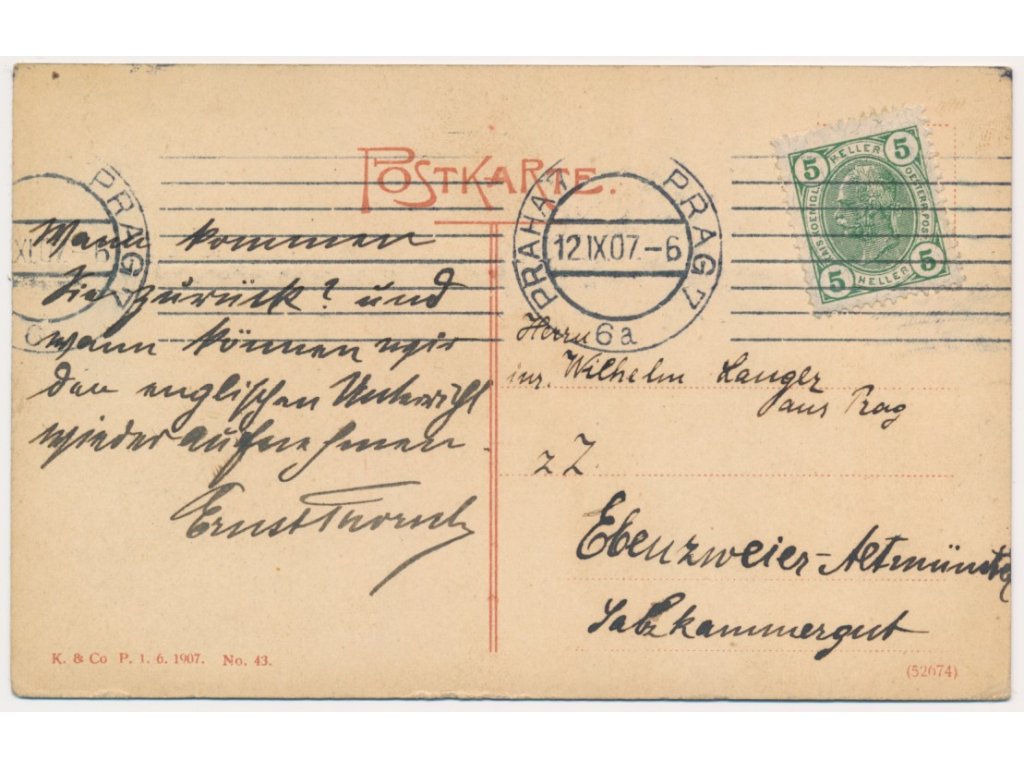 POSTKARTE.
PRAHA 7 PRAG 7
12.IX.07.-6
6a
PRAG 7
XI.07.-6
6
5 HELLER 5
5 HELLER 5
Wann kommen
Sie zurück? und
wann können wir
den englischen Unterricht
wieder aufnehmen.
Ernst
Herrn
Wilhelm Langer
aus Prag
z Z.
Ebenzweier-Altmünster
Salzkammergut
K. & Co P. 1. 6. 1907. No. 43.
(52674)